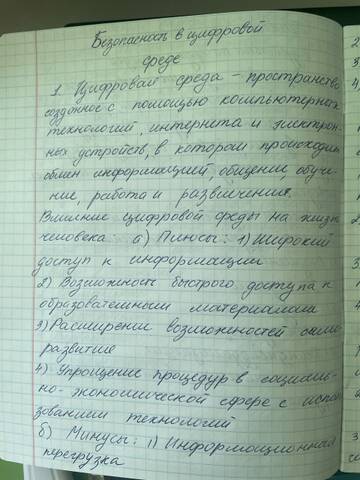 Безопасность в цифровой
среде
1. Цифровая среда – пространство
созданное с помощью компьютерных
технологий, интернета и электрон-
ных устройств, в котором происходит
обмен информацией, общение, обуче-
ние, работа и развлечения.
Влияние цифровой среды на жизнь
человека: а) Плюсы: 1) Широкий
доступ к информации
2) Возможность быстрого доступа к
образовательным материалам
3) Расширение возможностей само-
развитие
4) Упрощение процедур в социаль-
но-экономической сфере с исполь
зованием технологий
б) Минусы: 1) Информационная
перегрузка